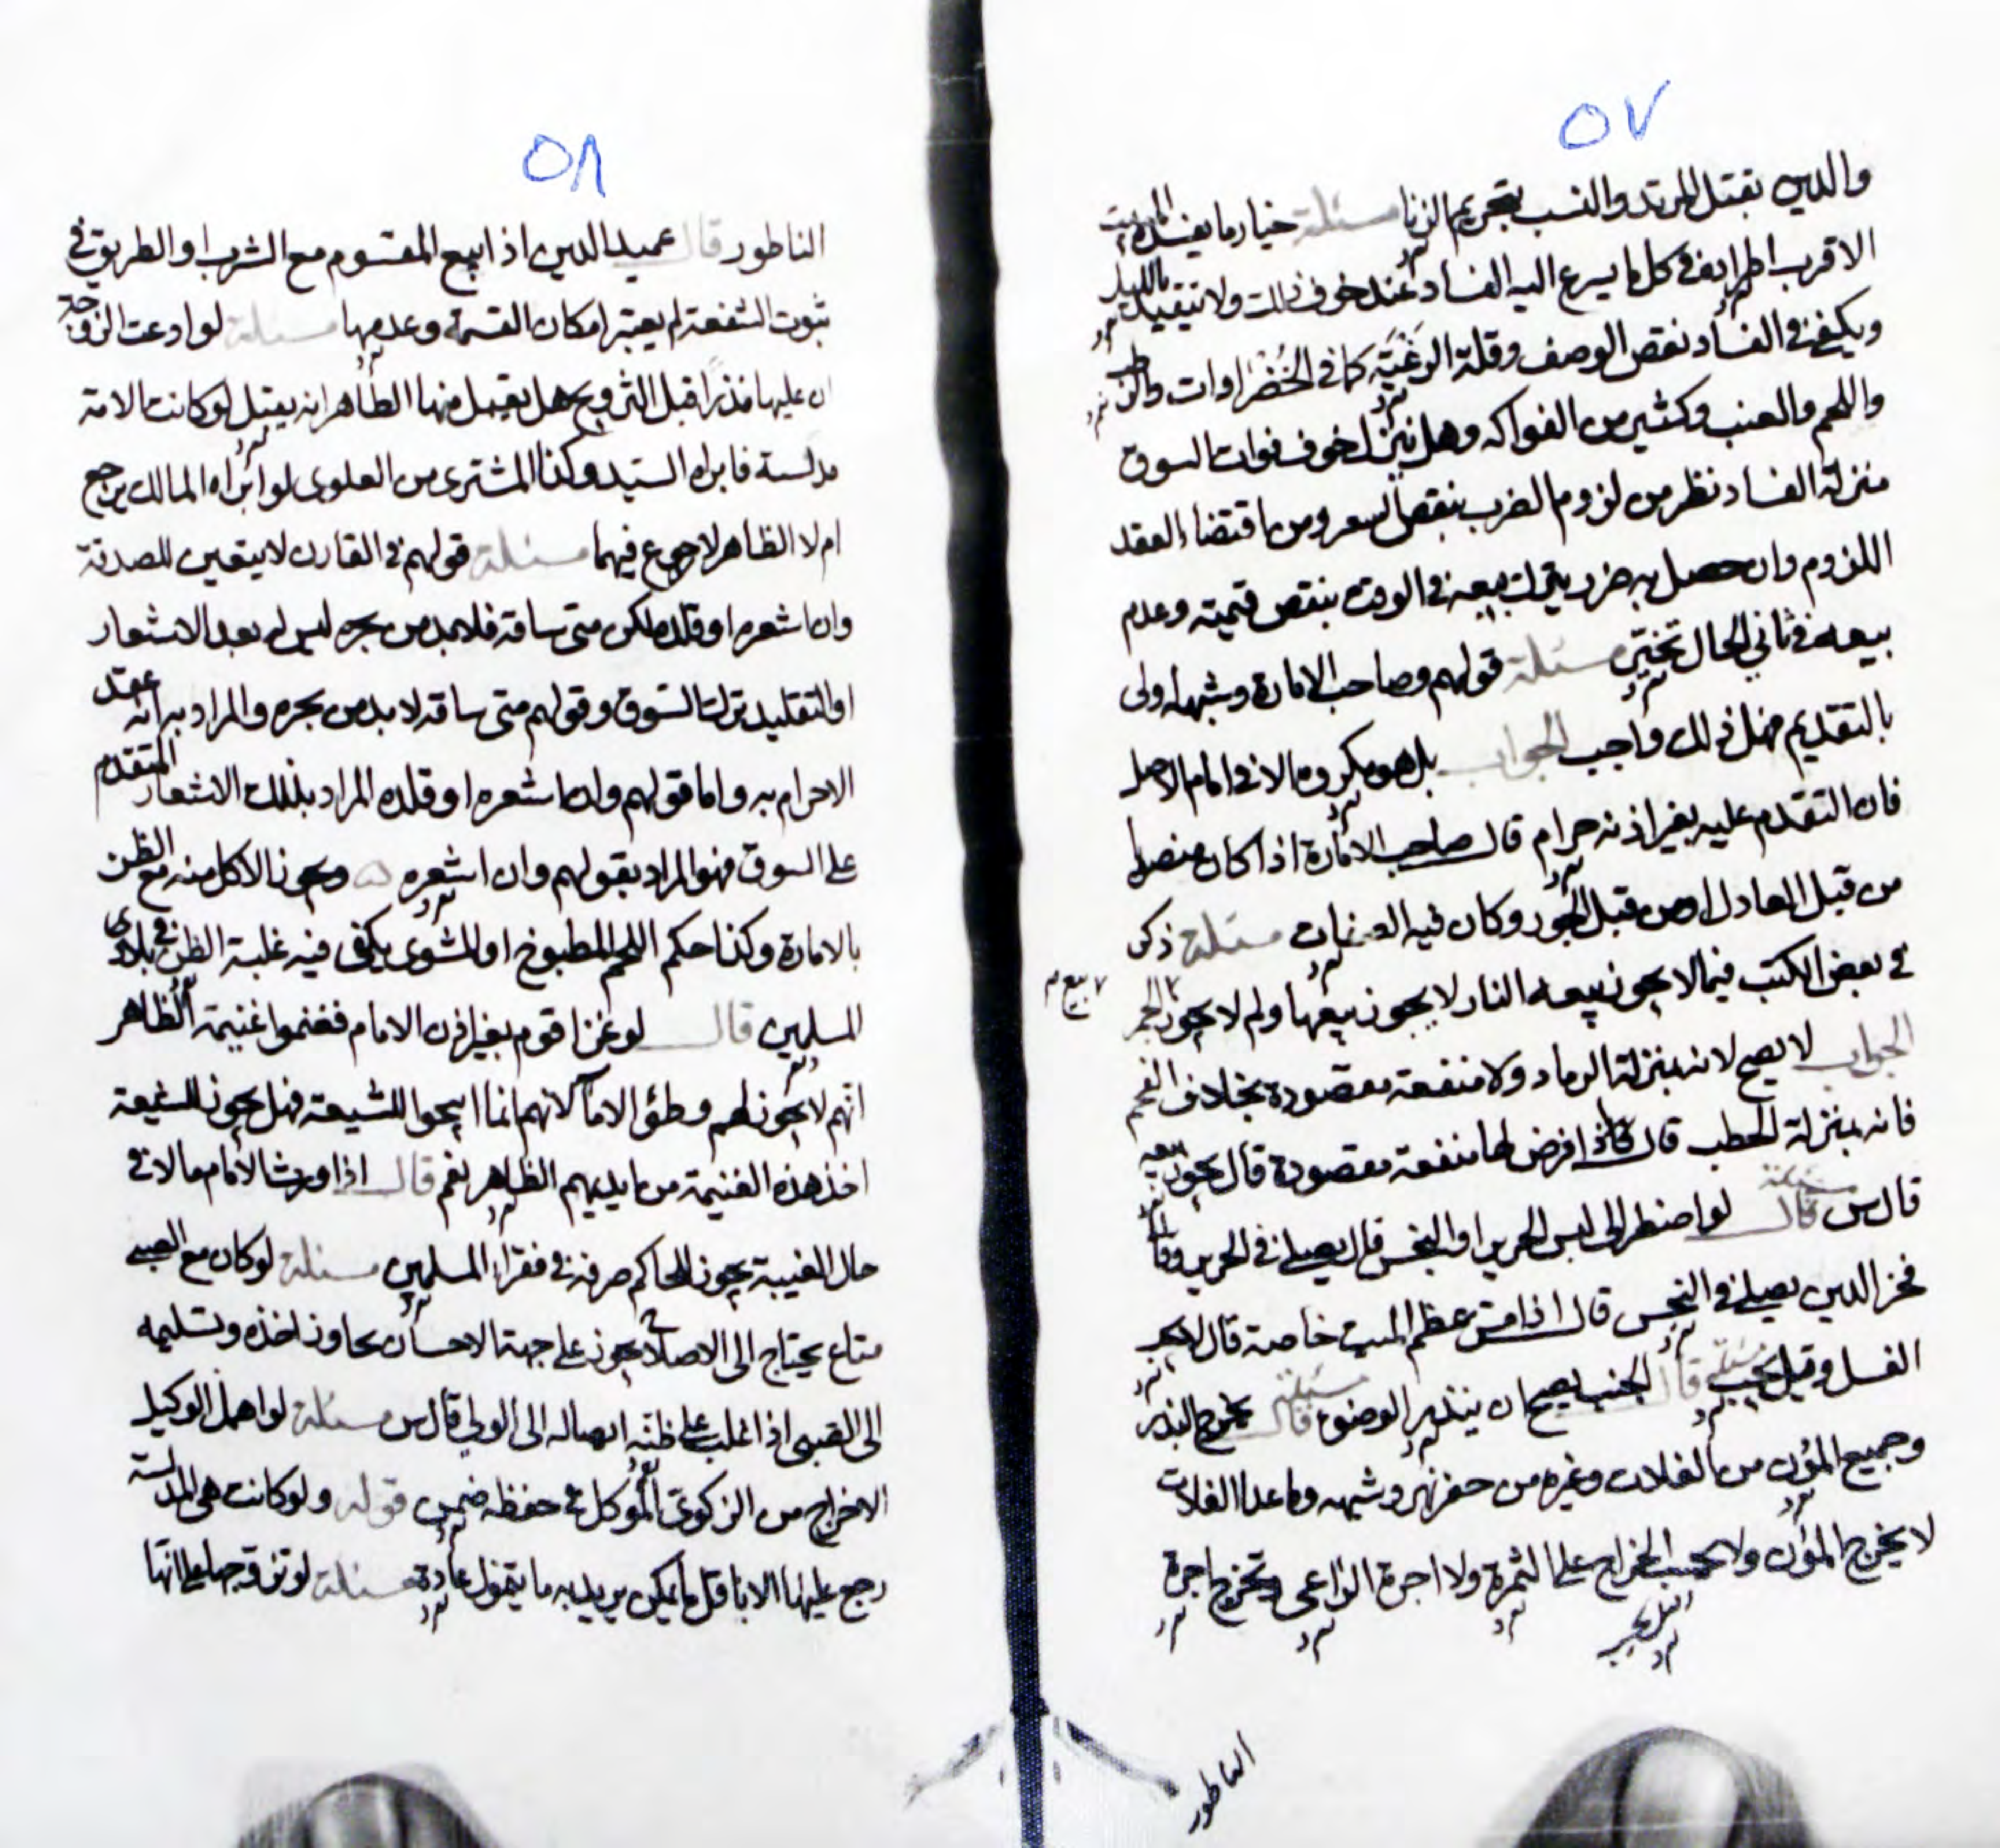 ٥٧
والدين بقتل المرتد والنسب بتحريم الزنا مسئلة خيار ما يفسده المبيت
الاقرب اطراده في كل ما يسرع اليه الفساد عند خوف ذلك ولا يتقيد بالليل
ويكفي في الفساد نقص الوصف وقلة الرغبة كما في الخضراوات والرطب
واللحم والعنب وكثير من الفواكه وهل ينزل خوف فوات السوق
منزلة الفساد نظر من لزوم الضرب بنقص السعر ومن اقتضاء العقد
اللزوم وان حصل به ضرر يترك بيعه في الوقت بنقص قيمته وعدم
بيعه في ثاني الحال تخير مسئلة قولهم وصاحب الامارة وشبهه اولى
بالتقديم فهل ذلك واجب الجواب بل هو مكروه الا في امام الاصل
فان التقدم عليه بغير اذنه حرام قال صاحب الامارة اذا كان منصوبا
من قبل العادل او من قبل الجور وكان فيه الصفات مسئلة ذكر
في بعض الكتب فيما لا يجوز بيعه النار لا يجوز بيعها ولم لا يجوز الجمر
بيع م
الجواب لا يصح لانه بمنزلة الرماد ولا منفعة مقصودة بخلاف الفحم
فانه بمنزلة الحطب قال فاذا فرض لها منفعة مقصودة قال يجوز بيعه
قال س مسئلة قال لو اضطر الى لبس الحرير او النجس قال يصلي في الحرير وقال
فخر الدين يصلي في النجس قال اذا مس عظم الميت خاصة قال لا يجب
الغسل وقيل يجب مسئلة قال الجنب يصح ان ينذر الوضوء مسئلة قال يخرج البذر
وجميع المؤن من الغلات وغيره من حفر نهر وشبهه وما عدا الغلات
لا يخرج المؤن ولا يحسب الخراج على الثمرة ولا اجرة الزراعي وتخرج اجرة
الناطور
٥٨
الناطور قال عميد الدين اذا ابيع المقسوم مع الشرب او الطريق في
ثبوت الشفعة لم يعتبر امكان القسمة وعدمها مسئلة لو ادعت الزوجة
ان عليها نذرا قبل التزويج هل يقبل منها الظاهر انه يقبل لو كانت الامة
مدلسة فابراه السيد وكذا المشتري من العلوي لو ابراه المالك يرجع
ام لا الظاهر لا رجوع فيهما مسئلة قولهم في القارن لا يتعين للصدقة
وان اشعره او قلده لكن متى ساقه فلا بد من نحره ليس له بعد الاشعار
او التقليد ترك السوق وقولهم متى ساقه لا بد من نحره والمراد به انه عقد
الاحرام به واما قولهم وان اشعره او قلده المراد بذلك الاشعار المتقدم
على السوق فهو المراد بقولهم وان اشعره ويجوز الاكل منه مع الظن
بالامارة وكذا حكم اللحم المطبوخ او المشوي يكفي فيه غلبة الظن في بلاد
المسلمين قال لو غزا قوم بغير اذن الامام فغنموا غنيمة الظاهر
انهم لا يجوز لهم وطئ الاماء لانهم انما ابيحوا للشيعة فهل يجوز للشيعة
اخذ هذه الغنيمة من ايديهم الظاهر نعم قال اذا ورث الامام مالا في
حال الغيبة يجوز للحاكم صرفه في فقراء المسلمين مسئلة لو كان مع الصبي
متاع يحتاج الى الاصلاح يجوز على جهة الاحسان يجاوز اخذه وتسليمه
الى الصبي اذا غلب على ظنه ايصاله الى الولي قال س مسئلة لو اهمل الوكيل
الاخراج من الزكوي الموكل في حفظه ضمن قوله ولو كانت هي المدلسة
رجع عليها الا باقل ما يمكن يريد به ما يتمول عادة مسئلة لو تزوجها على انها